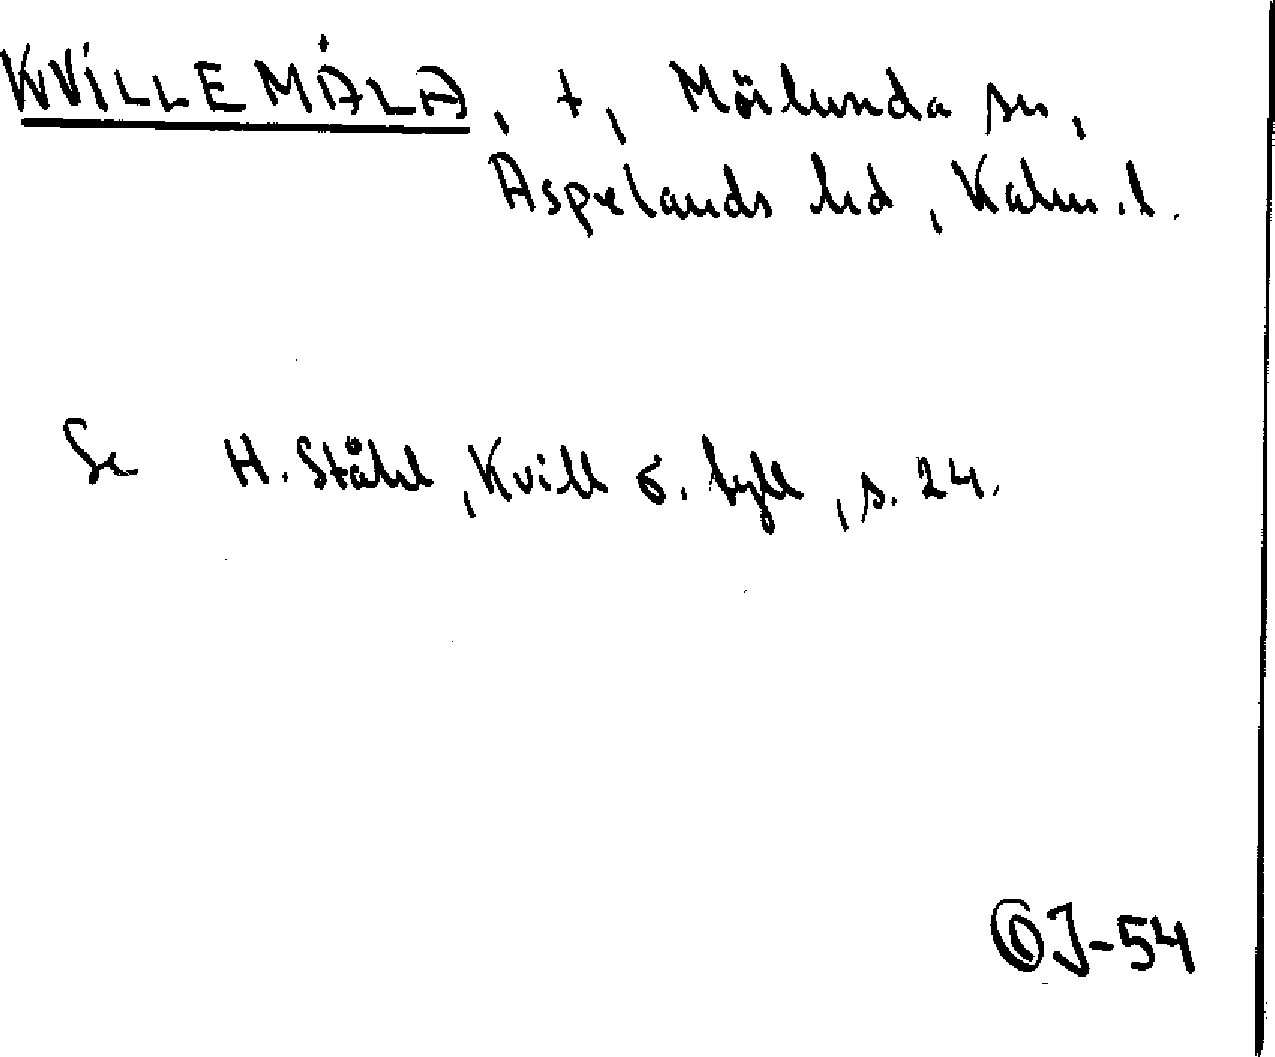 KVILLEMÅLA, t, Mörlunda sn,
Aspelands hd, Kalm. l.
Se H. Ståhl, Kvill o. tyll, s. 24.
J-54